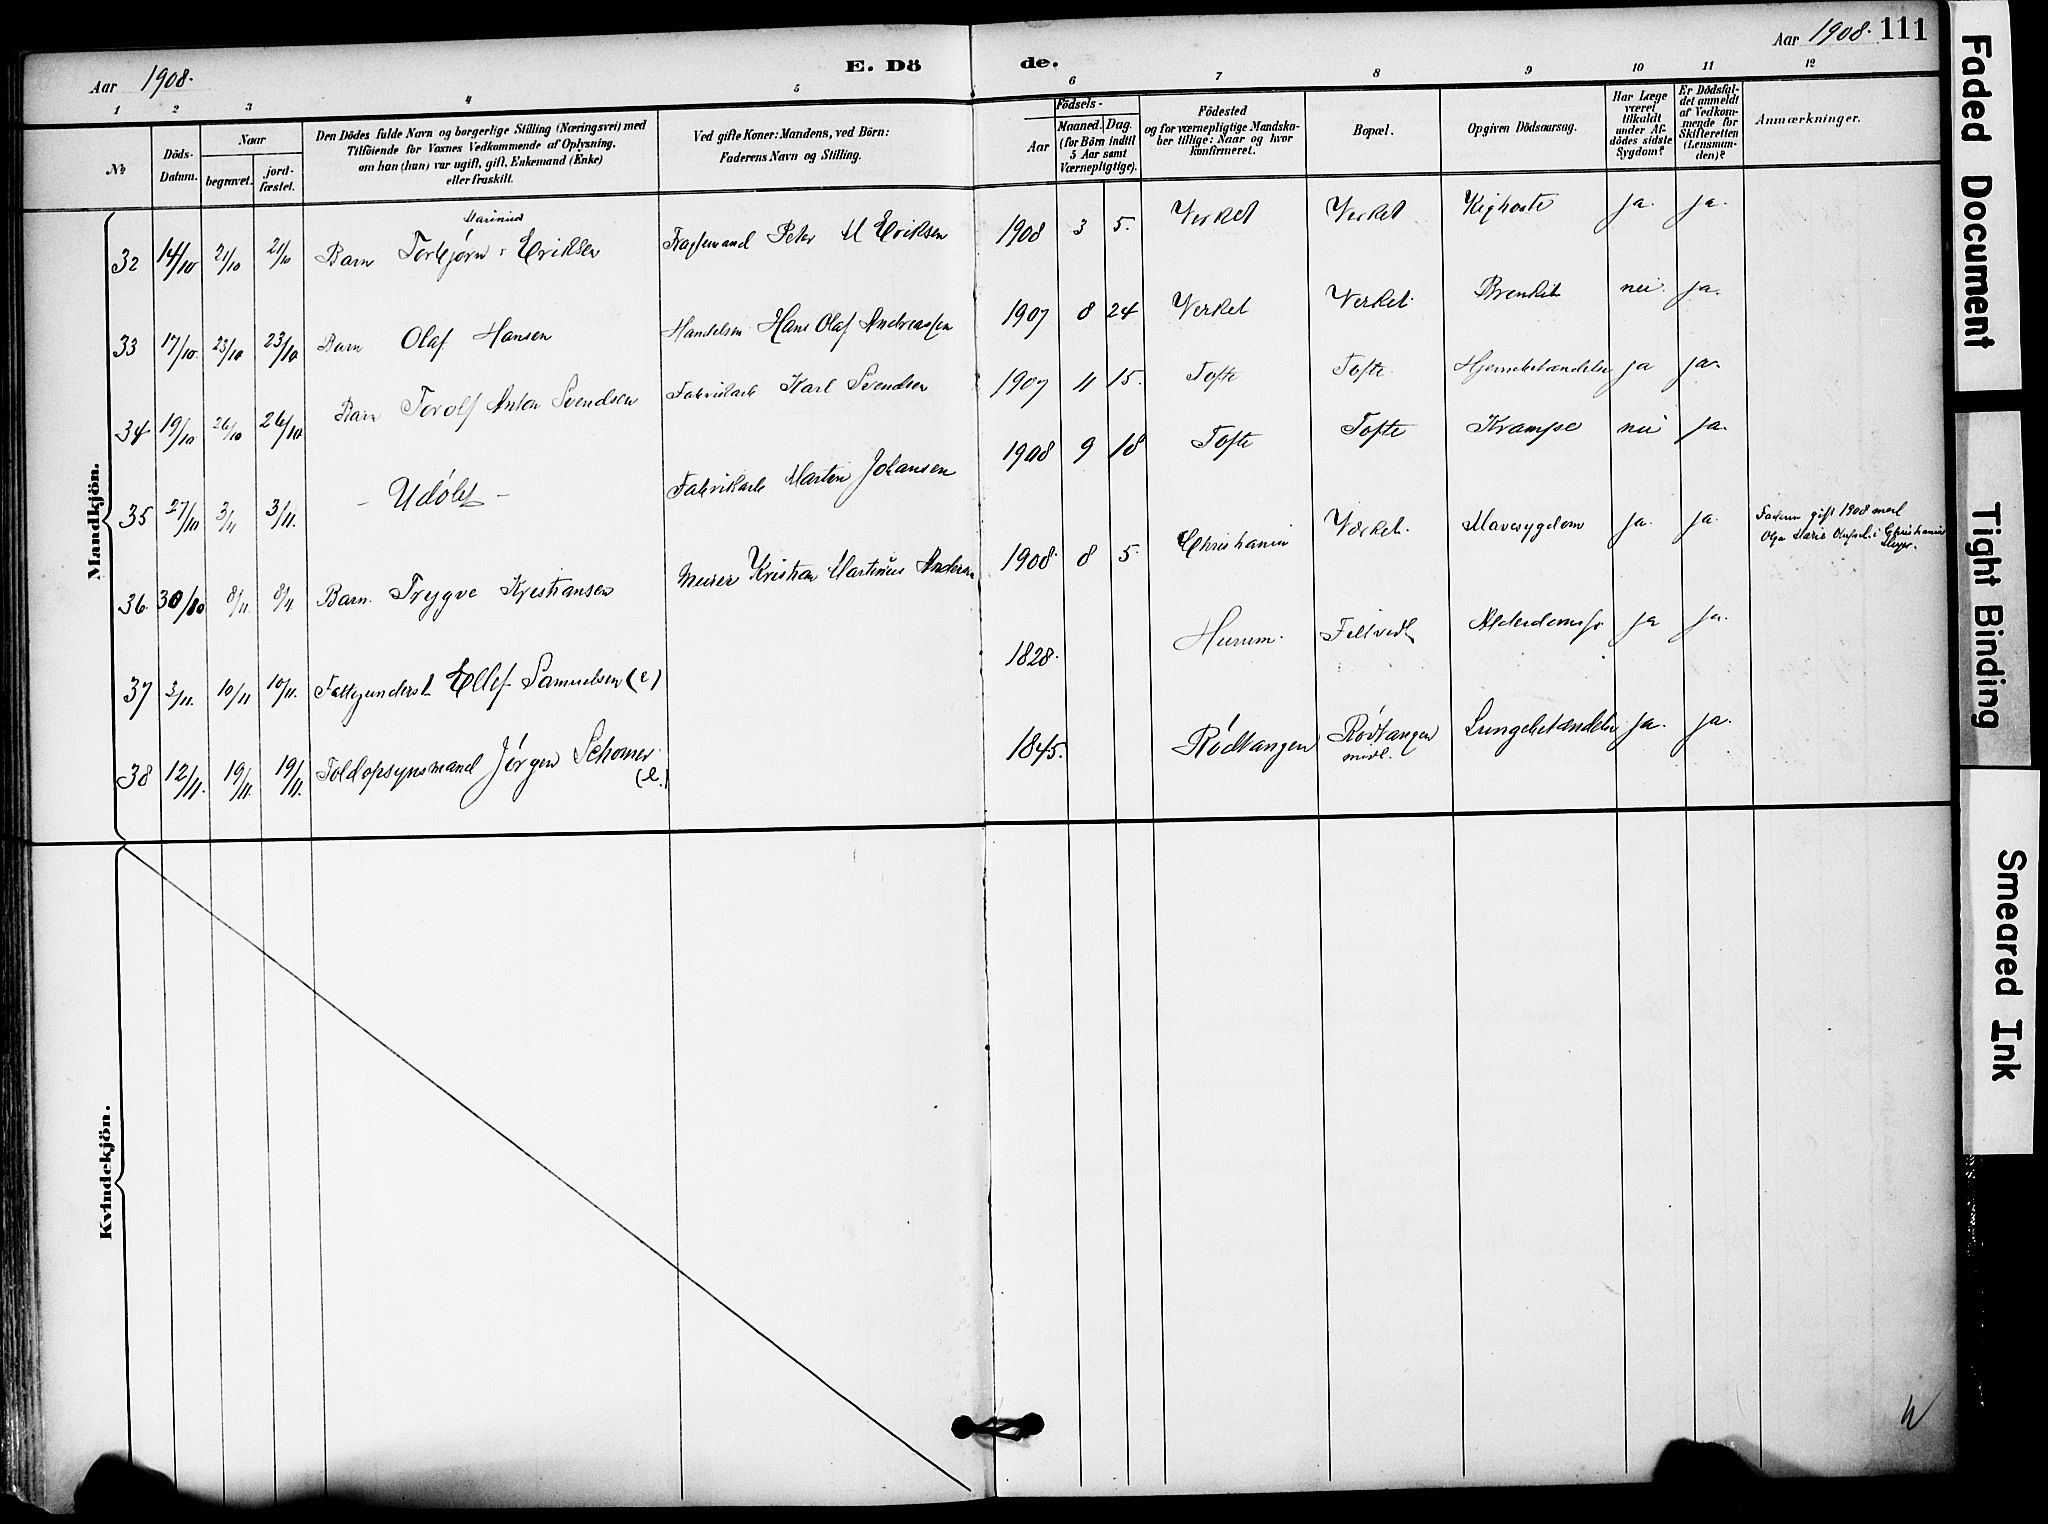 Aar 1908.
E. Dö de.
Aar 1908. 111
1 2 3 4 5 6 7 8 9 10 11 12
№
Döds-Datum.
Naar
begravet.
jord-fæstet.
Den Dödes fulde Navn og borgerlige Stilling (Næringsvei) med
Tilföiende for Voxnes Vedkommende af Oplysning,
om han (hun) var ugift, gift, Enkemand (Enke)
eller fraskilt.
Ved gifte Koner: Mandens, ved Börn:
Faderens Navn og Stilling.
Födsels-
Aar
Maaned. Dag.
(for Börn indtil
5 Aar samt
Værnepligtige).
Födested
og for værnepligtige Mandska-
ber tillige: Naar og hvor
konfirmeret.
Bopæl.
Opgiven Dödsaarsag.
Har Læge
været
tilkaldt
under Af-
dödes sidste
Sygdom?
Er Dödsfal-
det anmeldt
af Vedkom-
mende for
Skifteretten
(Lensman-
den)?
Anmærkninger.
Mandkjön.
Marinius
32 14/10 21/10 21/10 Barn Torbjørn Eriksen Peter M Eriksen 1908 3 5. Verket Verket Kighoste ja. ja.
33 17/10. 23/10 23/10 Barn Olaf Hansen Handelsm Hans Olaf Andreassen 1907 8 24 Verket Verket. Bronkit nei. ja.
34 19/10 26/10 26/10 Barn Torolf Anton Svendsen Fabrikarb Karl Svendsen 1907 11 15. Tofte Tofte. Hjernebetændelse ja ja.
35 27/10 3/11 3/11. - Udøbt - Fabrikarb Martin Johansen 1908 9 18 Tofte Tofte Krampe nei ja.
36. 30/10 8/11. 8/11 Barn. Trygve Kristiansen Murer Kristian Martinius Andersen 1908. 8 5. Christiania Værket. Mavesygdom ja. ja. Faderen gift 1908 med
Olga Marie Olufsd. i Christiania
37 3/11. 10/11 10/11. Fattigunderst Ellef Samuelsen (e) 1828. Hurum. Filtvedt ja ja.
38 12/11. 19/11. 19/11. Toldopsynsmand Jørgen (e.) 1845. Rødtangen Rødtangen
midl. Lungebetændelse ja. ja.
Kvindekjön.
Faded Document
Tight Binding
Smeared Ink